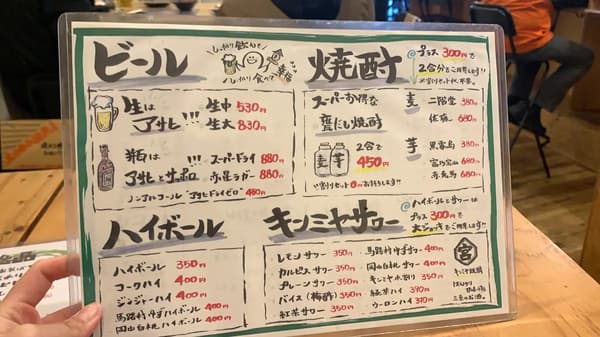 ビール
しっかり飲んで!
しっかり食べて
生は
アサヒ!!!
生中 530円
生大 830円
瓶は!!!
アサヒとサッポロ
スーパードライ 880円
赤星ラガー 880円
ノンアルコール "アサヒドライゼロ" 480円
焼酎
プラス300円で
2合分をご用意します!!
スーパーお得な
甕だし焼酎
麦 芋
2合で
450円
麦 二階堂 380円
佐宿 680円
芋 黒霧島 380円
富乃宝山 680円
赤兎馬 680円
ハイボール
ハイボール 350円
コークハイ 400円
ジンジャーハイ 400円
馬路村ゆずハイボール 400円
岡山白桃ハイボール 400円
キンミヤサワー
ハイボールとサワーは
プラス300円で
大ジョッキでご用意します!!
レモンサワー 350円
カルピスサワー 350円
プレーンサワー 350円
バイス(梅酢) 350円
紅茶サワー 350円
馬路村ゆずサワー 400円
岡山白桃サワー 400円
キンミヤ水割り 350円
緑茶ハイ 370円
ウーロンハイ 370円
宮
キンミヤ焼酎